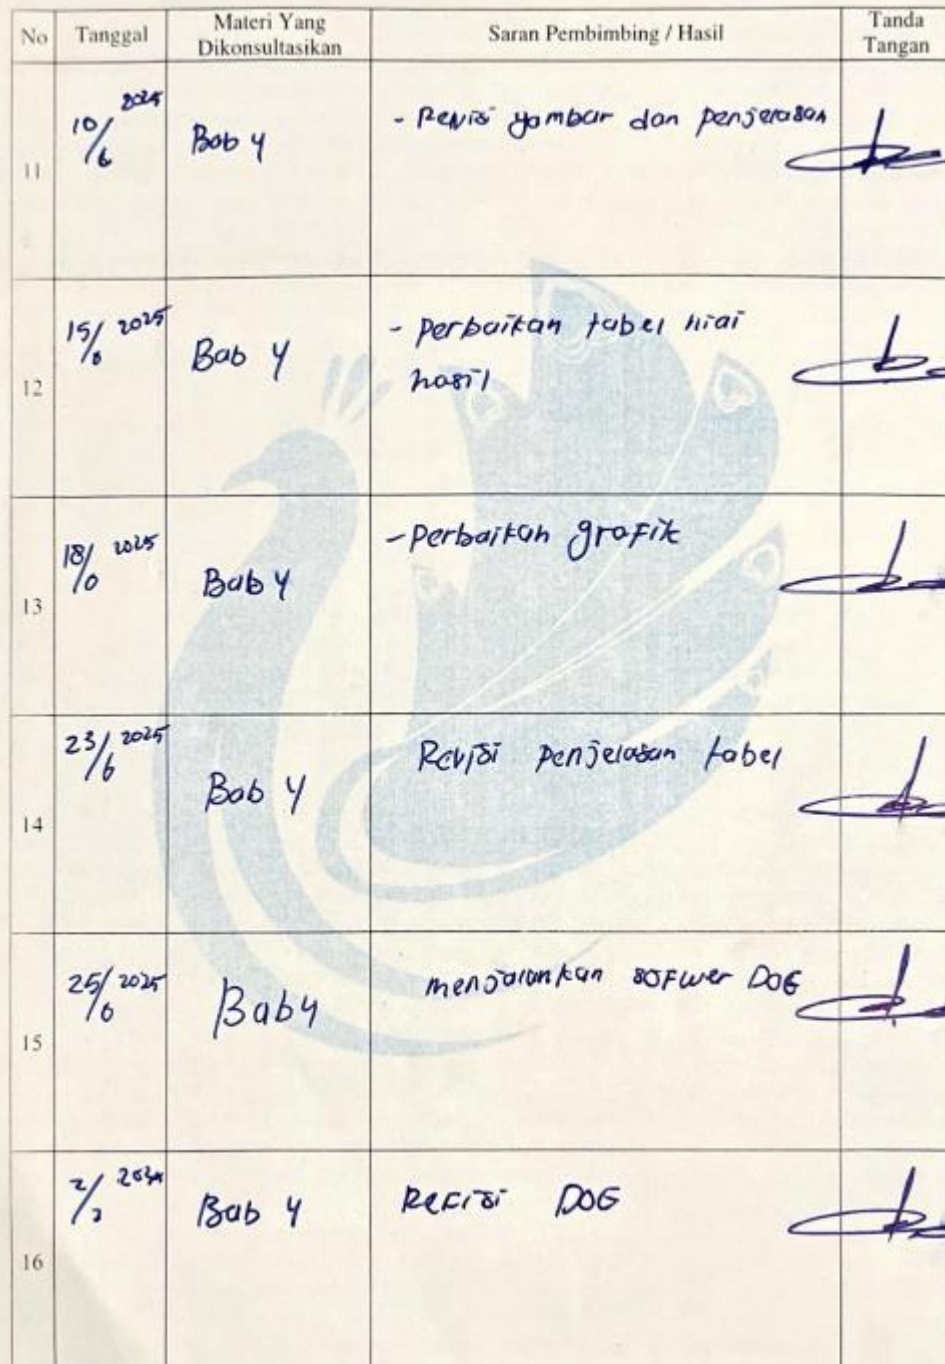 No Tanggal Materi Yang Dikonsultasikan Saran Pembimbing / Hasil Tanda Tangan
11 10/6 2025 Bab 4 - Revisi gambar dan penjelasan
12 15/6 2025 Bab 4 - perbaikan tabel
hasil
13 18/6 2025 Bab 4 - Perbaikan grafik
14 23/6 2025 Bab 4 Revisi penjelasan tabel
15 25/6 2025 Bab 4 menjalankan sofwer DOE
16 Bab 4 Refisi DOE